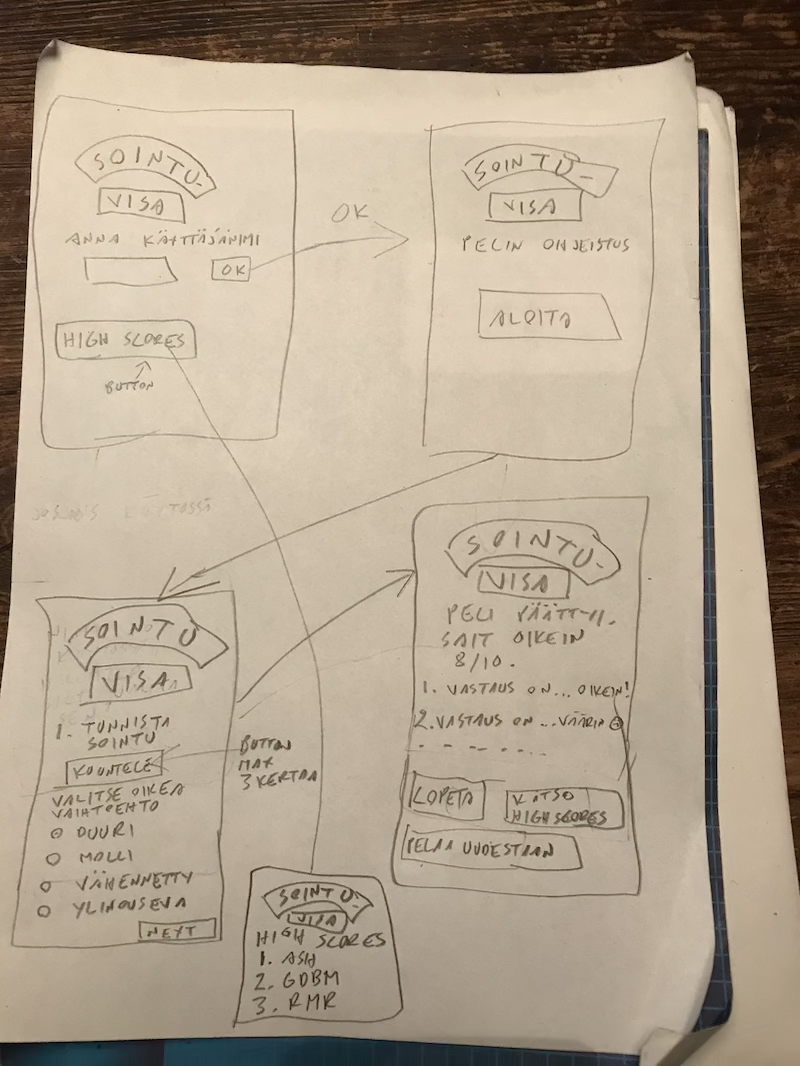 SOINTU-
VISA
ANNA KÄYTTÄJÄNIMI
OK
HIGH SCORES
BUTTON
OK
SOINTU-
VISA
PELIN OHJEISTUS
ALOITA
SOINTU
VISA
1. TUNNISTA
SOINTU
KUUNTELE
BUTTON
MAX
3 KERTAA
VALITSE OIKEA
VAIHTOEHTO
DUURI
MOLLI
VÄHENNETTY
YLINOUSEVA
NEXT
SOINTU-
VISA
PELI PÄÄTTYI.
SAIT OIKEIN
8/10.
1. VASTAUS ON... OIKEIN!
2. VASTAUS ON ...VÄÄRIN
- - - - . . .
LOPETA
KATSO
HIGHSCORES
PELAA UUDESTAAN
SOINTU-
VISA
HIGH SCORES
1. ASH
2. GDBM
3. RMR